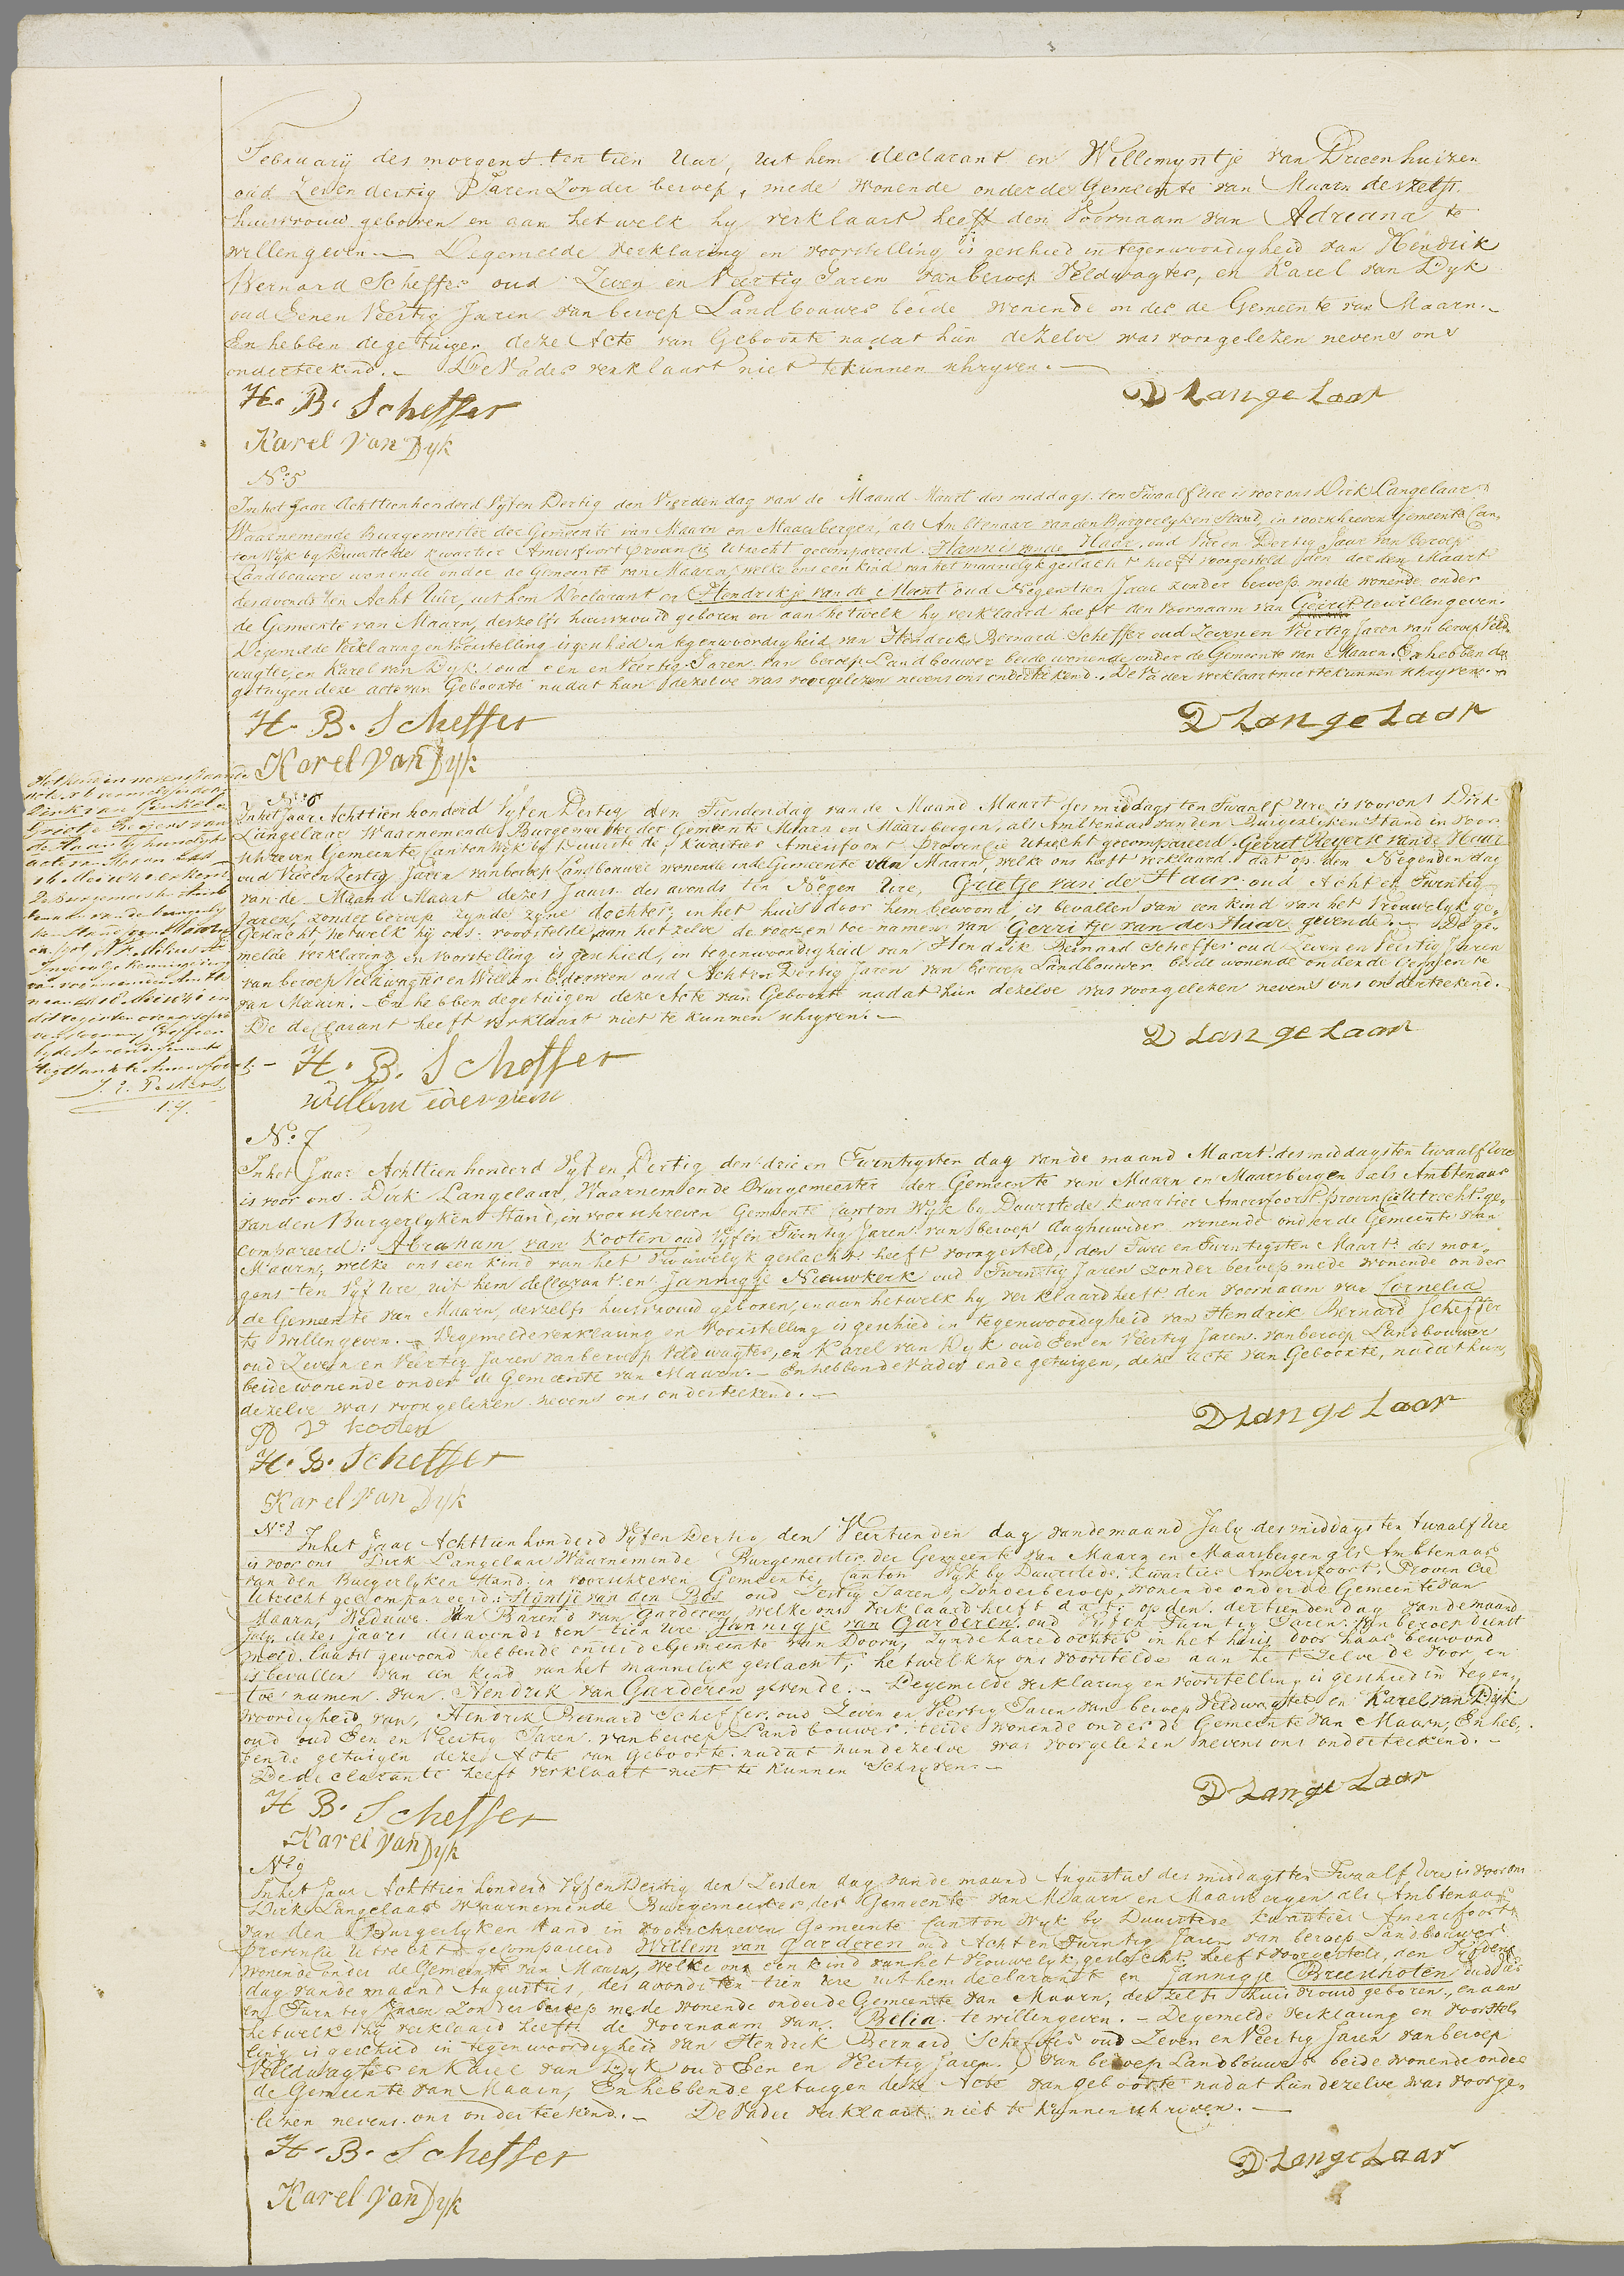 February des morgens ten tien Uur, uit hem declarant en Willemyntje van Drieenhuizen
oud Zeven dertig Jaren Zonder beroep, mede wonende onder de Gemeente van Maarn deszelfs
huisvrouw geboren en aan het welk hy verklaart heeft den Voornaam van Adriana te
willen geven. — Degemelde verklaring en voorstelling is geschied in tegenwoordigheid van Hendrik
Bernard Scheffer oud Zeven en Veertig Jaren van beroep Veldwagter, en Karel van Dyk
oud Eenen Veertig Jaren van beroep Landbouwer beide wonende onder de Gemeente van Maarn. –
En hebben de getuigen deze Acte van Geboorte nadat hun dezelve was voorgelezen nevens ons
onderteekend. – De Vader verklaart niet te kunnen schryven. —
H. B. Scheffer
D Langelaar
Karel van Dyk
No. 5
In het Jaar Achttienhonderd Vyf en Dertig den Vierden dag van de Maand Maart des middags ten Twaalf Ure is voor ons Dirk Langelaar
Waarnemende Burgemeester der Gemeente van Maarn en Maarsbergen, als Ambtenaar van den Burgerlyken Stand, in voorschreven Gemeente Can-
ton Wyk by Duurstede Kwartier Amersfoort Provincie Utrecht gecompareerd. Hannis van de Haar, oud Vier en Dertig Jaar van beroep
Landbouwer wonende onder de Gemeente van Maarn, welke ons een kind van het mannelyk geslacht heeft voorgesteld den derden Maart
des avonds ten Acht Ure, uit hem Declarant en Hendrikje van de Mast oud Negentien Jaar zonder beroep mede wonende onder
de Gemeente van Maarn, deszelfs huisvrouw geboren en aan hetwelk hy verklaard heeft den Voornaam van Gerrit te willen geven.
Degemelde Verklaring en Voorstelling is geschied in tegenwoordigheid van Hendrik Bernard Scheffer oud Zeven en Veertig Jaren van beroep Veld-
wagter, en Karel van Dyk, oud een en Veertig Jaren van beroep Landbouwer beide wonende onder de Gemeente van Maarn. En hebben de
getuigen deze acte van Geboorte nadat hun dezelve was voorgelezen nevens ons onderteekend. De Vader verklaart niet te kunnen schryven. –
H. B. Scheffer
D Langelaar
Karel van Dyk
No. 6
In het Jaar Achttien honderd Vyf en Dertig den Tienden dag van de Maand Maart des middags ten Twaalf Ure is voor ons Dirk
Langelaar Waarnemende Burgemeester der Gemeente Maarn en Maarsbergen, als Ambtenaar van den Burgerlyken Stand in voor-
schreven Gemeente Canton Wyk by Duurstede, Kwartier Amersfoort Provincie Utrecht gecompareerd Gerrit Reyers van de Haar
oud Vieren Zestig Jaren van beroep Landbouwer wonende in de Gemeente van Maarn, welke ons heeft verklaard dat op den Negenden dag
van de Maand Maart dezes Jaars des avonds ten Negen Ure, Grietje van de Haar oud Acht en Twintig
Jaren, zonder beroep zynde zyne dochter, in het huis door hem bewoond, is bevallen van een kind van het Vrouwelyk ge-
geslacht, hetwelk hy ons voorstelde, aan hetzelve de voor en toe namen van Gerritje van de Haar gevende. — De ge-
melde verklaring en voorstelling is geschied, in tegenwoordigheid van Hendrik Bernard Scheffer oud Zeven en Veertig Jaren
van beroep Veldwagter en Willem Ederveen oud Acht en Dertig Jaren van beroep Landbouwer beide wonende onder de Gemeente
van Maarn. – En hebben de getuigen deze Acte van Geboorte nadat hun dezelve was voorgelezen nevens ons onderteekend.
De declarant heeft verklaart niet te kunnen schryven. —
D Langelaar
H. B. Scheffer
Willem ederveen
Het kind in nevenstaande
acte is
Dirk van Ginkel en
Grietje Reyers van
de Haar by huwelyks
acte van
16 Mei erkend
De Burgemeester
van de burgerly
ken Stand van Maarn
by de Arrondissements
Regtbank te Amersfoort. –
No. 7
In het Jaar Achttien honderd Vyf en Dertig, den drie en Twintigsten dag van de maand Maart des middags ten twaalf Ure
is voor ons Dirk Langelaar, Waarnemende Burgemeester der Gemeente van Maarn en Maarsbergen als Ambtenaar
van den Burgerlyken Stand, in voorschreven Gemeente Canton Wyk by Duurstede, Kwartier Amersfoort Provincie Utrecht ge-
compareerd: Abraham van Kooten oud Vyf en Twintig Jaren van beroep daghuurder wonende onder de Gemeente van
Maarn, welke ons een kind van het vrouwelyk geslacht heeft voorgesteld, den Twee en Twintigsten Maart des mor-
gens ten Vyf Ure uit hem declarant en Jannigje Nieuwkerk oud Twintig Jaren zonder beroep mede wonende onder
de Gemeente van Maarn, deszelfs huisvrouw geboren, en aan hetwelk hy verklaard heeft den voornaam van Cornelia
te willen geven. – Degemelde verklaring en voorstelling is geschied in tegenwoordigheid van Hendrik Bernard Scheffer
oud Zeven en Veertig Jaren van beroep Veldwagter, en Karel van Dyk oud Een en Veertig Jaren van beroep Landbouwer
beide wonende onder de Gemeente van Maarn. – En hebben de Vader en de getuigen, deze acte van Geboorte, nadat hun
dezelve was voorgelezen nevens ons onderteekend. —
D Langelaar
A V kooten
H. B. Scheffer
Karel van Dyk
No. 8
In het Jaar Achttien honderd Vyf en Dertig den Veertienden dag van de maand July des middags ten twaalf Ure
is voor ons Dirk Langelaar Waarnemende Burgemeester der Gemeente van Maarn en Maarsbergen als Ambtenaar
van den Burgerlyken Stand in voorschreven Gemeente, Canton Wyk by Duurstede, Kwartier Amersfoort, Provencie
Utrecht gecompareerd: Styntje van den Bos oud Zestig Jaren, Zonder beroep, wonende onder de Gemeente van
Maarn, Weduwe van Barend van Garderen, welke ons verklaard heeft dat: op den dertienden dag van de maand
July dezes Jaars des avonds ten tien Ure Jannigje van Garderen oud Vyf en Twintig Jaren van beroep dienst
meid laatst gewoond hebbende onder de Gemeente van Doorn, zynde hare dochter in het huis door haar bewoond
is bevallen van een kind van het mannelyk geslacht, hetwelk zy ons voorstelde aan het zelve de voor en
toe namen van Hendrik van Garderen gevende. – Degemelde verklaring en voorstelling is geschied in tegen-
woordigheid van, Hendrik Bernard Scheffer, oud Zeven en Veertig Jaren van beroep Veldwagter en Karel van Dyk
oud oud Een en Veertig Jaren van beroep Landbouwer: beide wonende onder de Gemeente van Maarn, En heb-
bende getuigen deze Acte van Geboorte nadat hun dezelve was voorgelezen nevens ons onderteekend. –
De declarante heeft verklaart niet te kunnen Schryven. –
D Langelaar
H B. Scheffer
Karel van Dyk
No. 9
In het Jaar Achttien honderd Vyf en Dertig den Zesden dag van de maand Augustus des middags ten Twaalf Ure is voor ons
Dirk Langelaar Waarnemende Burgemeester der Gemeente van Maarn en Maarsbergen als Ambtenaar
van den Burgerlyken Stand in voorschreven Gemeente Canton Wyk by Duurstede Kwartier Amersfoort
Provencie Utrecht gecompareerd Willem van Garderen oud Acht en Twintig Jaren van beroep Landbouwer
wonende onder de Gemeente van Maarn, welke ons een kind van het Vrouwelyk geslacht heeft voorgesteld, den Vyfden
dag van de maand Augustus, des avonds ten tien Ure uit hem declarandt en Jannigje Breeschoten oud
en Twintig Jaren Zonder beroep mede wonende onder de Gemeente van Maarn, deszelfs huisvrouw geboren, en aan
hetwelk hy verklaard heeft de voornaam van Belia te willen geven. – Degemelde verklaring en voorstel-
ling is geschied in tegenwoordigheid van Hendrik Bernard Scheffer oud Zeven en Veertig Jaren van beroep
Veldwagter en Karel van Dyk oud Een en Veertig Jaren. van beroep Landbouwer beide wonende onder
de Gemeente van Maarn, En hebben de getuigen deze Acte van geboorte nadat hun dezelve was voorge-
lezen nevens ons onderteekend. – De Vader verklaart niet te kunnen schryven. —
H. B. Scheffer
D Langelaar
Karel van Dyk